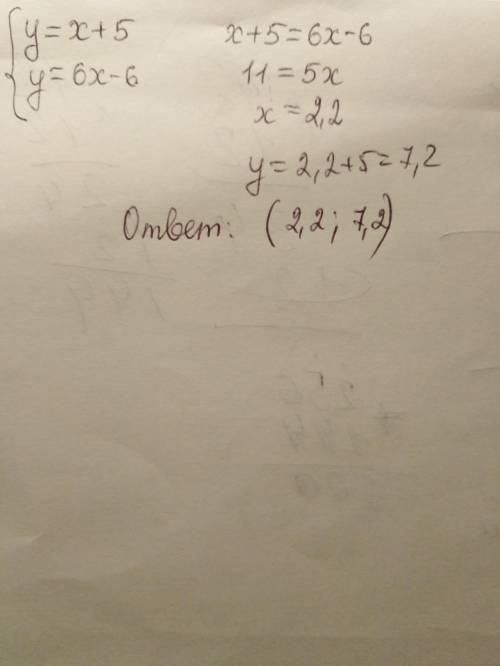 y=x+5
y=6x-6
x+5=6x-6
11=5x
x=2,2
y=2,2+5=7,2
Ответ: (2,2; 7,2)